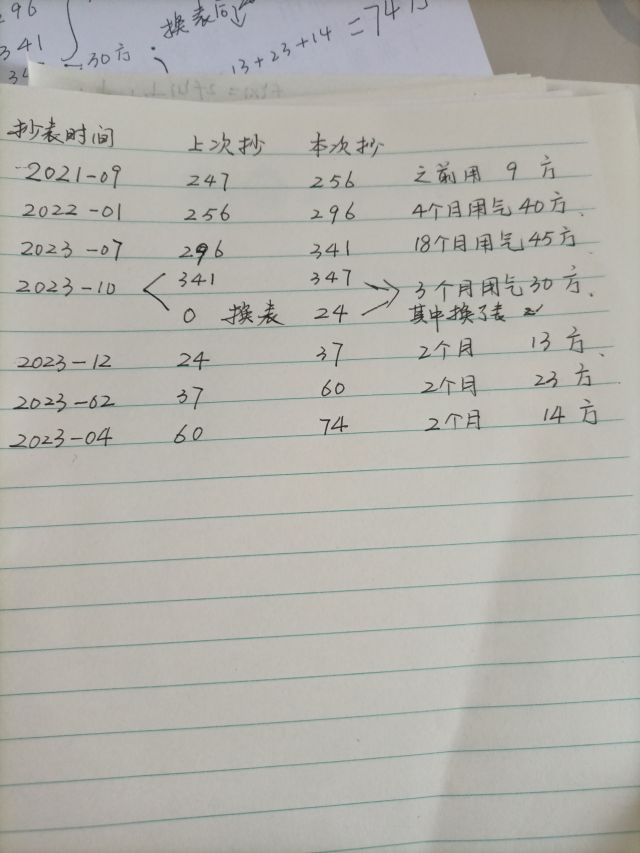 296
341
34
30方
换表后
13+23+14=74
抄表时间 上次抄 本次抄
2021-09 247 256 之前用 9 方
2022-01 256 296 4个月用气40方、
2023-07 296 341 18个月用气45方
2023-10 341 347 3个月用气30方、
0 换表 24 其中换了表
2023-12 24 37 2个月 13方、
2023-02 37 60 2个月 23方
2023-04 60 74 2个月 14方